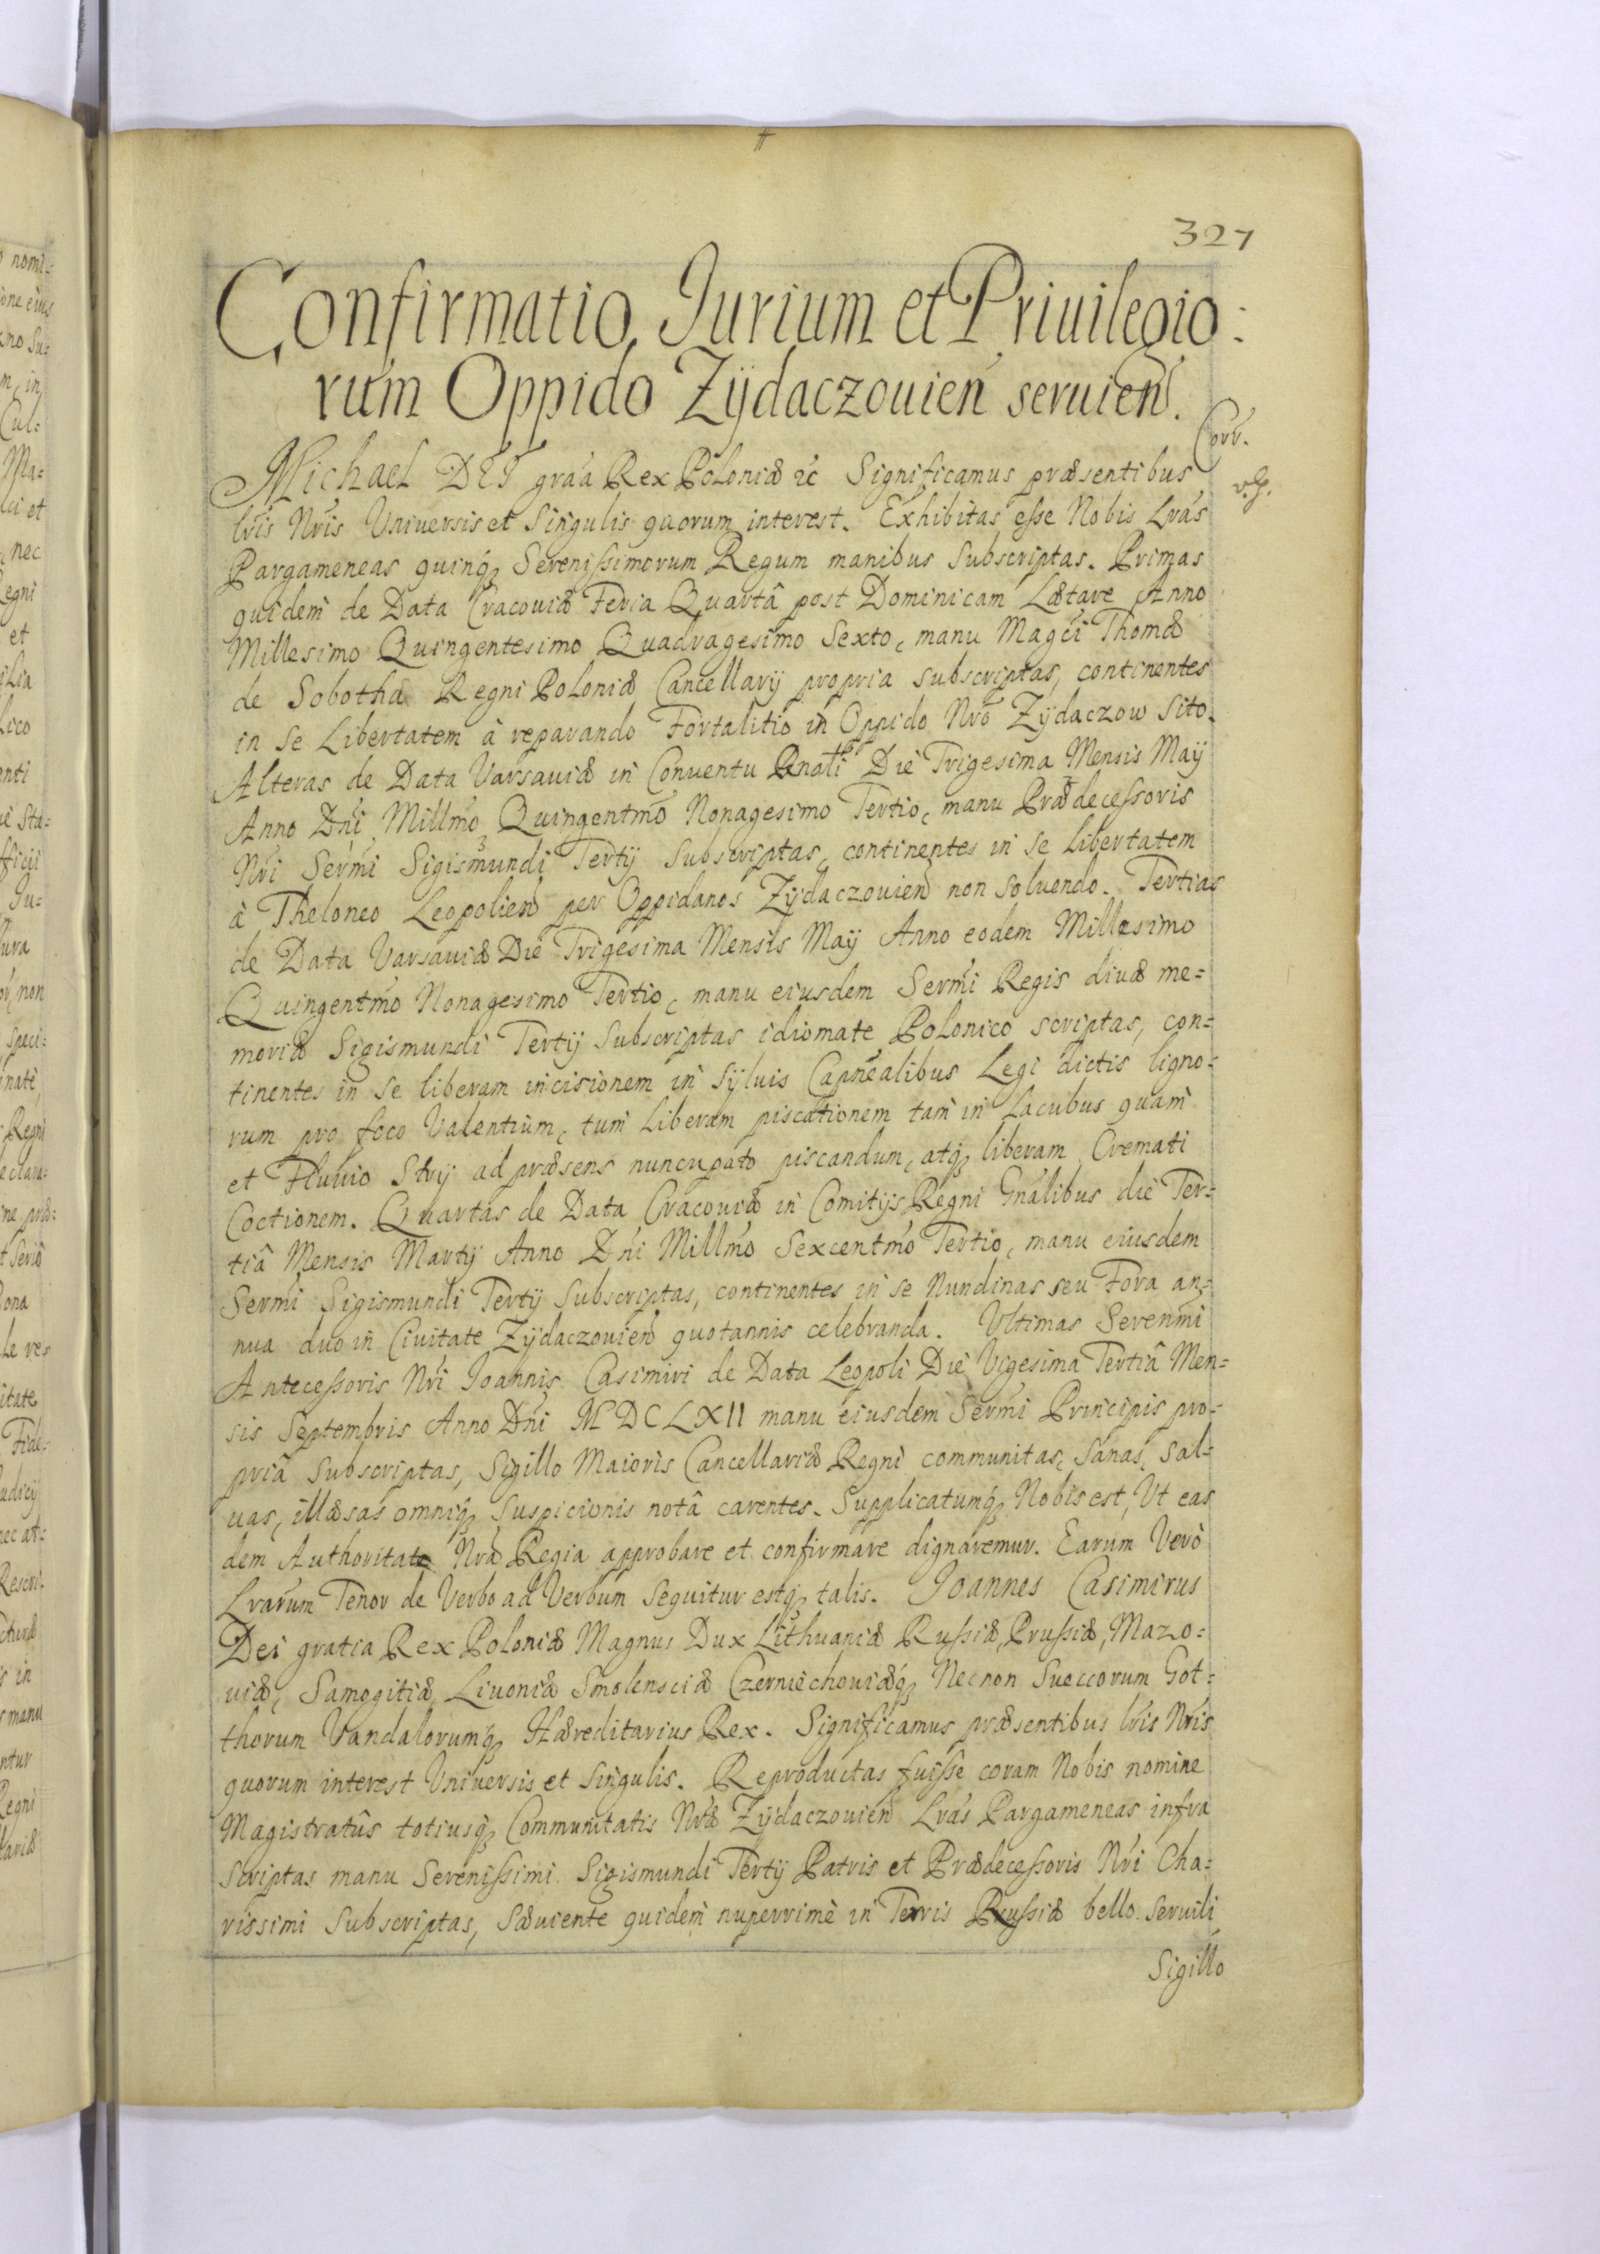 327
Confirmatio Jurium et Priuilegio:
rum Oppido Zÿdaczouien seruien.
Corr.
Michael DEI gra͠a Rex Poloniæ &c Significamus præsentibus
lris Nris Vniuersis et Singulis quorum interest. Exhibitas esse Nobis Lras
Pargameneas quinq3 Serenissimorum Regum manibus subscriptas. Primas
quidem de Data Cracouiæ Feria Quartâ post Dominicam Lætare Anno
Millesimo Quingentesimo Quadragesimo Sexto, manu Magci Thomæ
de Sobotha Regni Poloniæ Cancellarij propria subscriptas, continentes
in se Libertatem à reparando Fortalitio in Oppido Nro Zÿdaczow sito.
Alteras de Data Varsauiæ in Conuentu Gnali Die Trigesima Mensis Maÿ
Anno Dni Millmo Quingentmo Nonagesimo Tertio, manu Prædecessoris
Nri Sermi Sigismundi Tertij subscriptas, continentes in se libertatem
à Theloneo Leopolien per Oppidanos Zÿdaczouien non soluendo. Tertias
de Data Varsauiæ Die Trigesima Mensis Maÿ Anno eodem Millesimo
Quingentmo Nonagesimo Tertio, manu eiusdem Sermi Regis diuæ me=
moriæ Sigismundi Tertij subscriptas idiomate Polonico scriptas, con=
tinentes in se liberam incisionem in sÿluis Capnealibus Legi dictis ligno=
rum pro foco Valentium, tum liberam piscationem tam in Lacubus quam
et Fluuio Stry ad præsens nuncupato piscandum, atq3 liberam Cremati
Coctionem. Quartas de Data Cracouiæ in Comitijs Regni Gnalibus die Ter=
tiâ Mensis Martij Anno Dni Millmo Sexcentmo Tertio, manu eiusdem
Sermi Sigismundi Tertij subscriptas, continentes in se Nundinas seu Fora an=
nua duo in Ciuitate Zÿdaczouien quotannis celebranda. Vltimas Serenmi
Antecessoris Nri Joannis Casimiri de Data Leopoli Die Vigesima Tertiâ Men=
sis Septembris Anno Dni MDCLXII manu eiusdem Sermi Principis pro=
priâ subscriptas, Sigillo Maioris Cancellariæ Regni communitas, sanas, sal=
uas, illæsas omniq3 suspicionis notâ carentes. Supplicatumq3 Nobis est, Vt eas
dem Authoritate Nra Regia approbare et confirmare dignaremur. Earum Verò
Lrarum Tenor de Verbo ad Verbum sequitur estq3 talis. Joannes Casimirus
Dei gratia Rex Poloniæ Magnus Dux Lithuaniæ Russiæ, Prussiæ, Mazo=
uiæ, Samogitiæ, Liuoniæ Smolensciæ Czerniechouiæq3 Necnon Sueccorum Got=
thorum Vandalorumq3 Hæreditarius Rex. Significamus præsentibus lris Nris
quorum interest Vniuersis et singulis. Reproductas fuisse coram Nobis nomine
Magistratûs totiusq3 Communitatis Nræ Zÿdaczouien Lras Pargameneas infra
scriptas manu Serenissimi Sigismundi Tertij Patris et Prædecessoris Nri Cha=
rissimi subscriptas, sæuiente quidem nuperrimè in Terris Russiæ bello seruili
Sigillo